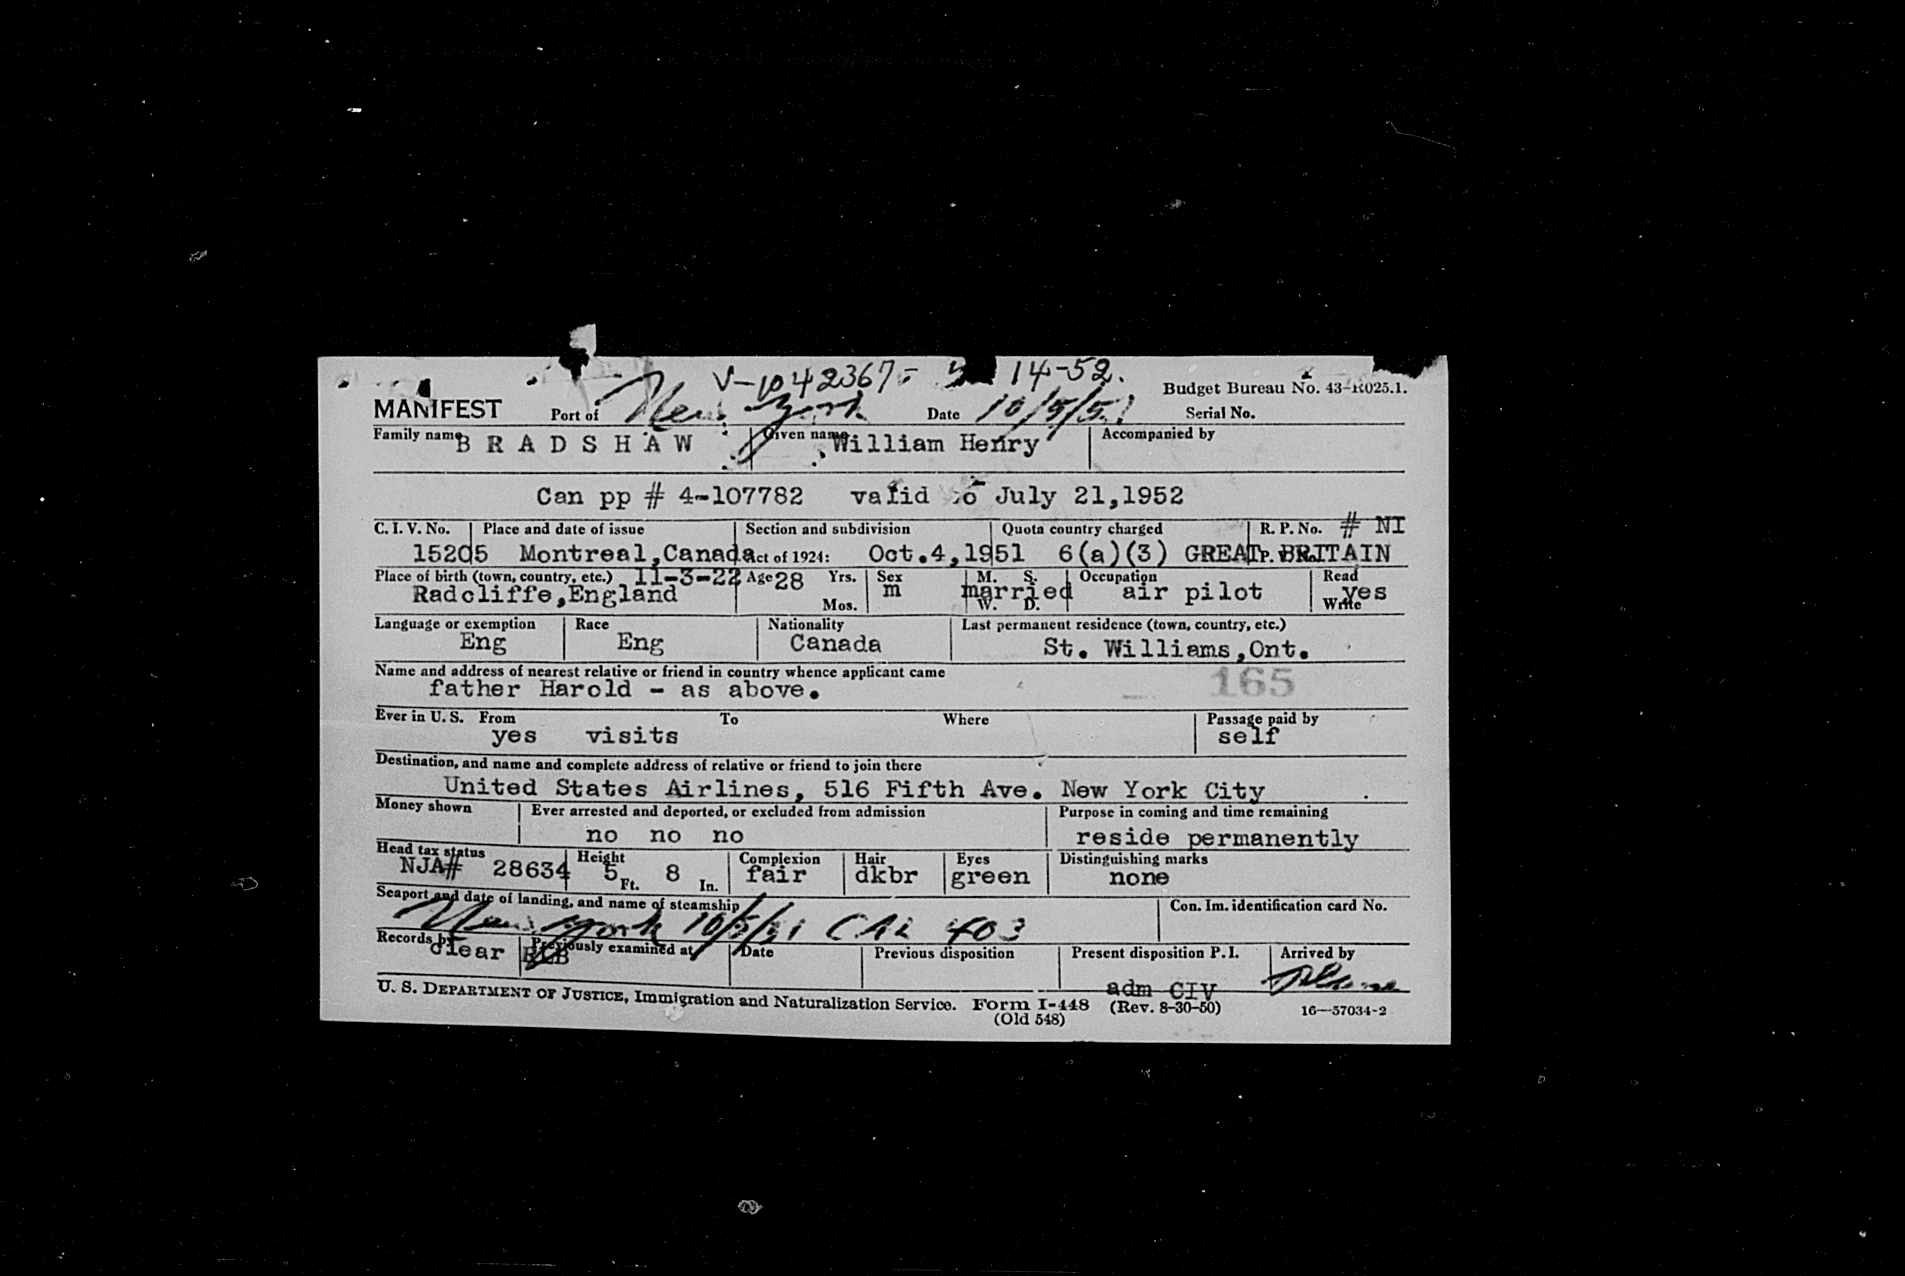 V-1042367- 14-52.
Budget Bureau No. 43-R025.1.
MANIFEST Port of New York Date 10/5/51 Serial No.
Family name BRADSHAW Given name William Henry Accompanied by
Can pp # 4-107782 valid to July 21,1952
C. I. V. No. Place and date of issue Section and subdivision Quota country charged R. P. No. # NI
15205 Montreal,Canada Act of 1924: Oct.4,1951 6(a)(3) GREAT BRITAIN
Place of birth (town, country, etc.) 11-3-22 Age 28 Yrs. Sex M. S. Occupation Read
Radcliffe,England Mos. m married air pilot yes
W. D. Write
Language or exemption Race Nationality Last permanent residence (town, country, etc.)
Eng Eng Canada St. Williams,Ont.
Name and address of nearest relative or friend in country whence applicant came
father Harold - as above. 165
Ever in U. S. From To Where Passage paid by
yes visits self
Destination, and name and complete address of relative or friend to join there
United States Airlines, 516 Fifth Ave. New York City
Money shown Ever arrested and deported, or excluded from admission Purpose in coming and time remaining
no no no reside permanently
Head tax status Height Complexion Hair Eyes Distinguishing marks
NJA# 28634 5 Ft. 8 In. fair dkbr green none
Seaport and date of landing, and name of steamship Con. Im. identification card No.
New York 10/5/51 403
Records by Previously examined at Date Previous disposition Present disposition P. I. Arrived by
clear adm CIV
U. S. DEPARTMENT OF JUSTICE, Immigration and Naturalization Service. Form I-448 (Rev. 8-30-50) 16—57034-2
(Old 548)